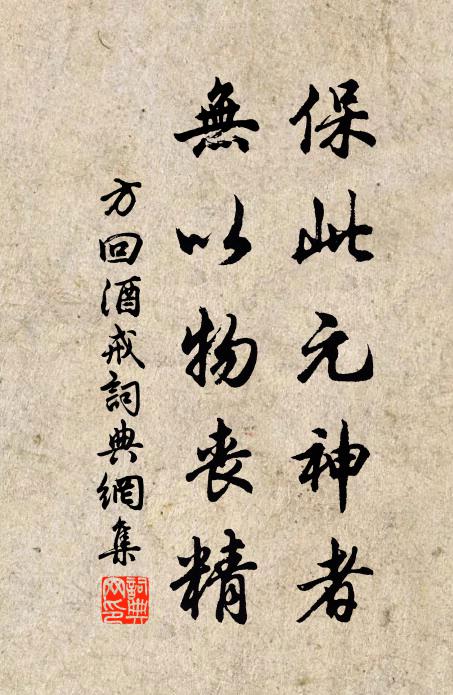 保此元神者
無以物喪精
方回酒戒詞典網集
詞典網印